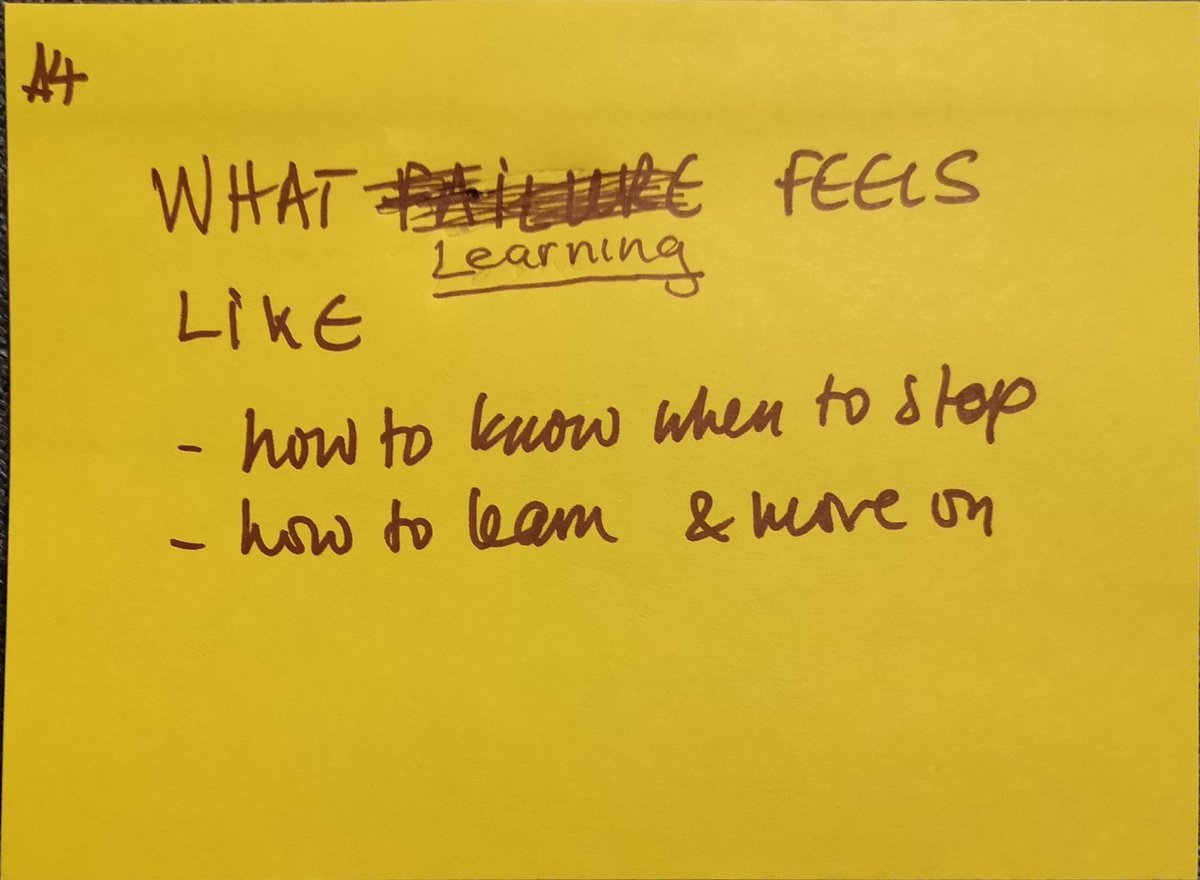 A4
WHAT FAILURE FEELS
Learning
LIKE
- how to know when to stop
- how to learn & move on